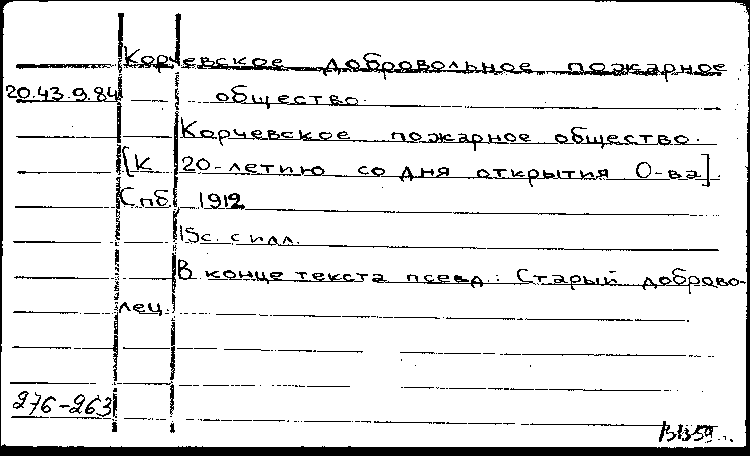 Корчевское добровольное пожарное
20.43.9.84 общество.
Корчевское пожарное общество.
[К 20-летию со дня открытия О-ва].
Спб 1912
15с. с илл.
В конце текста псевд.: Старый доброво-
лец.
276-263